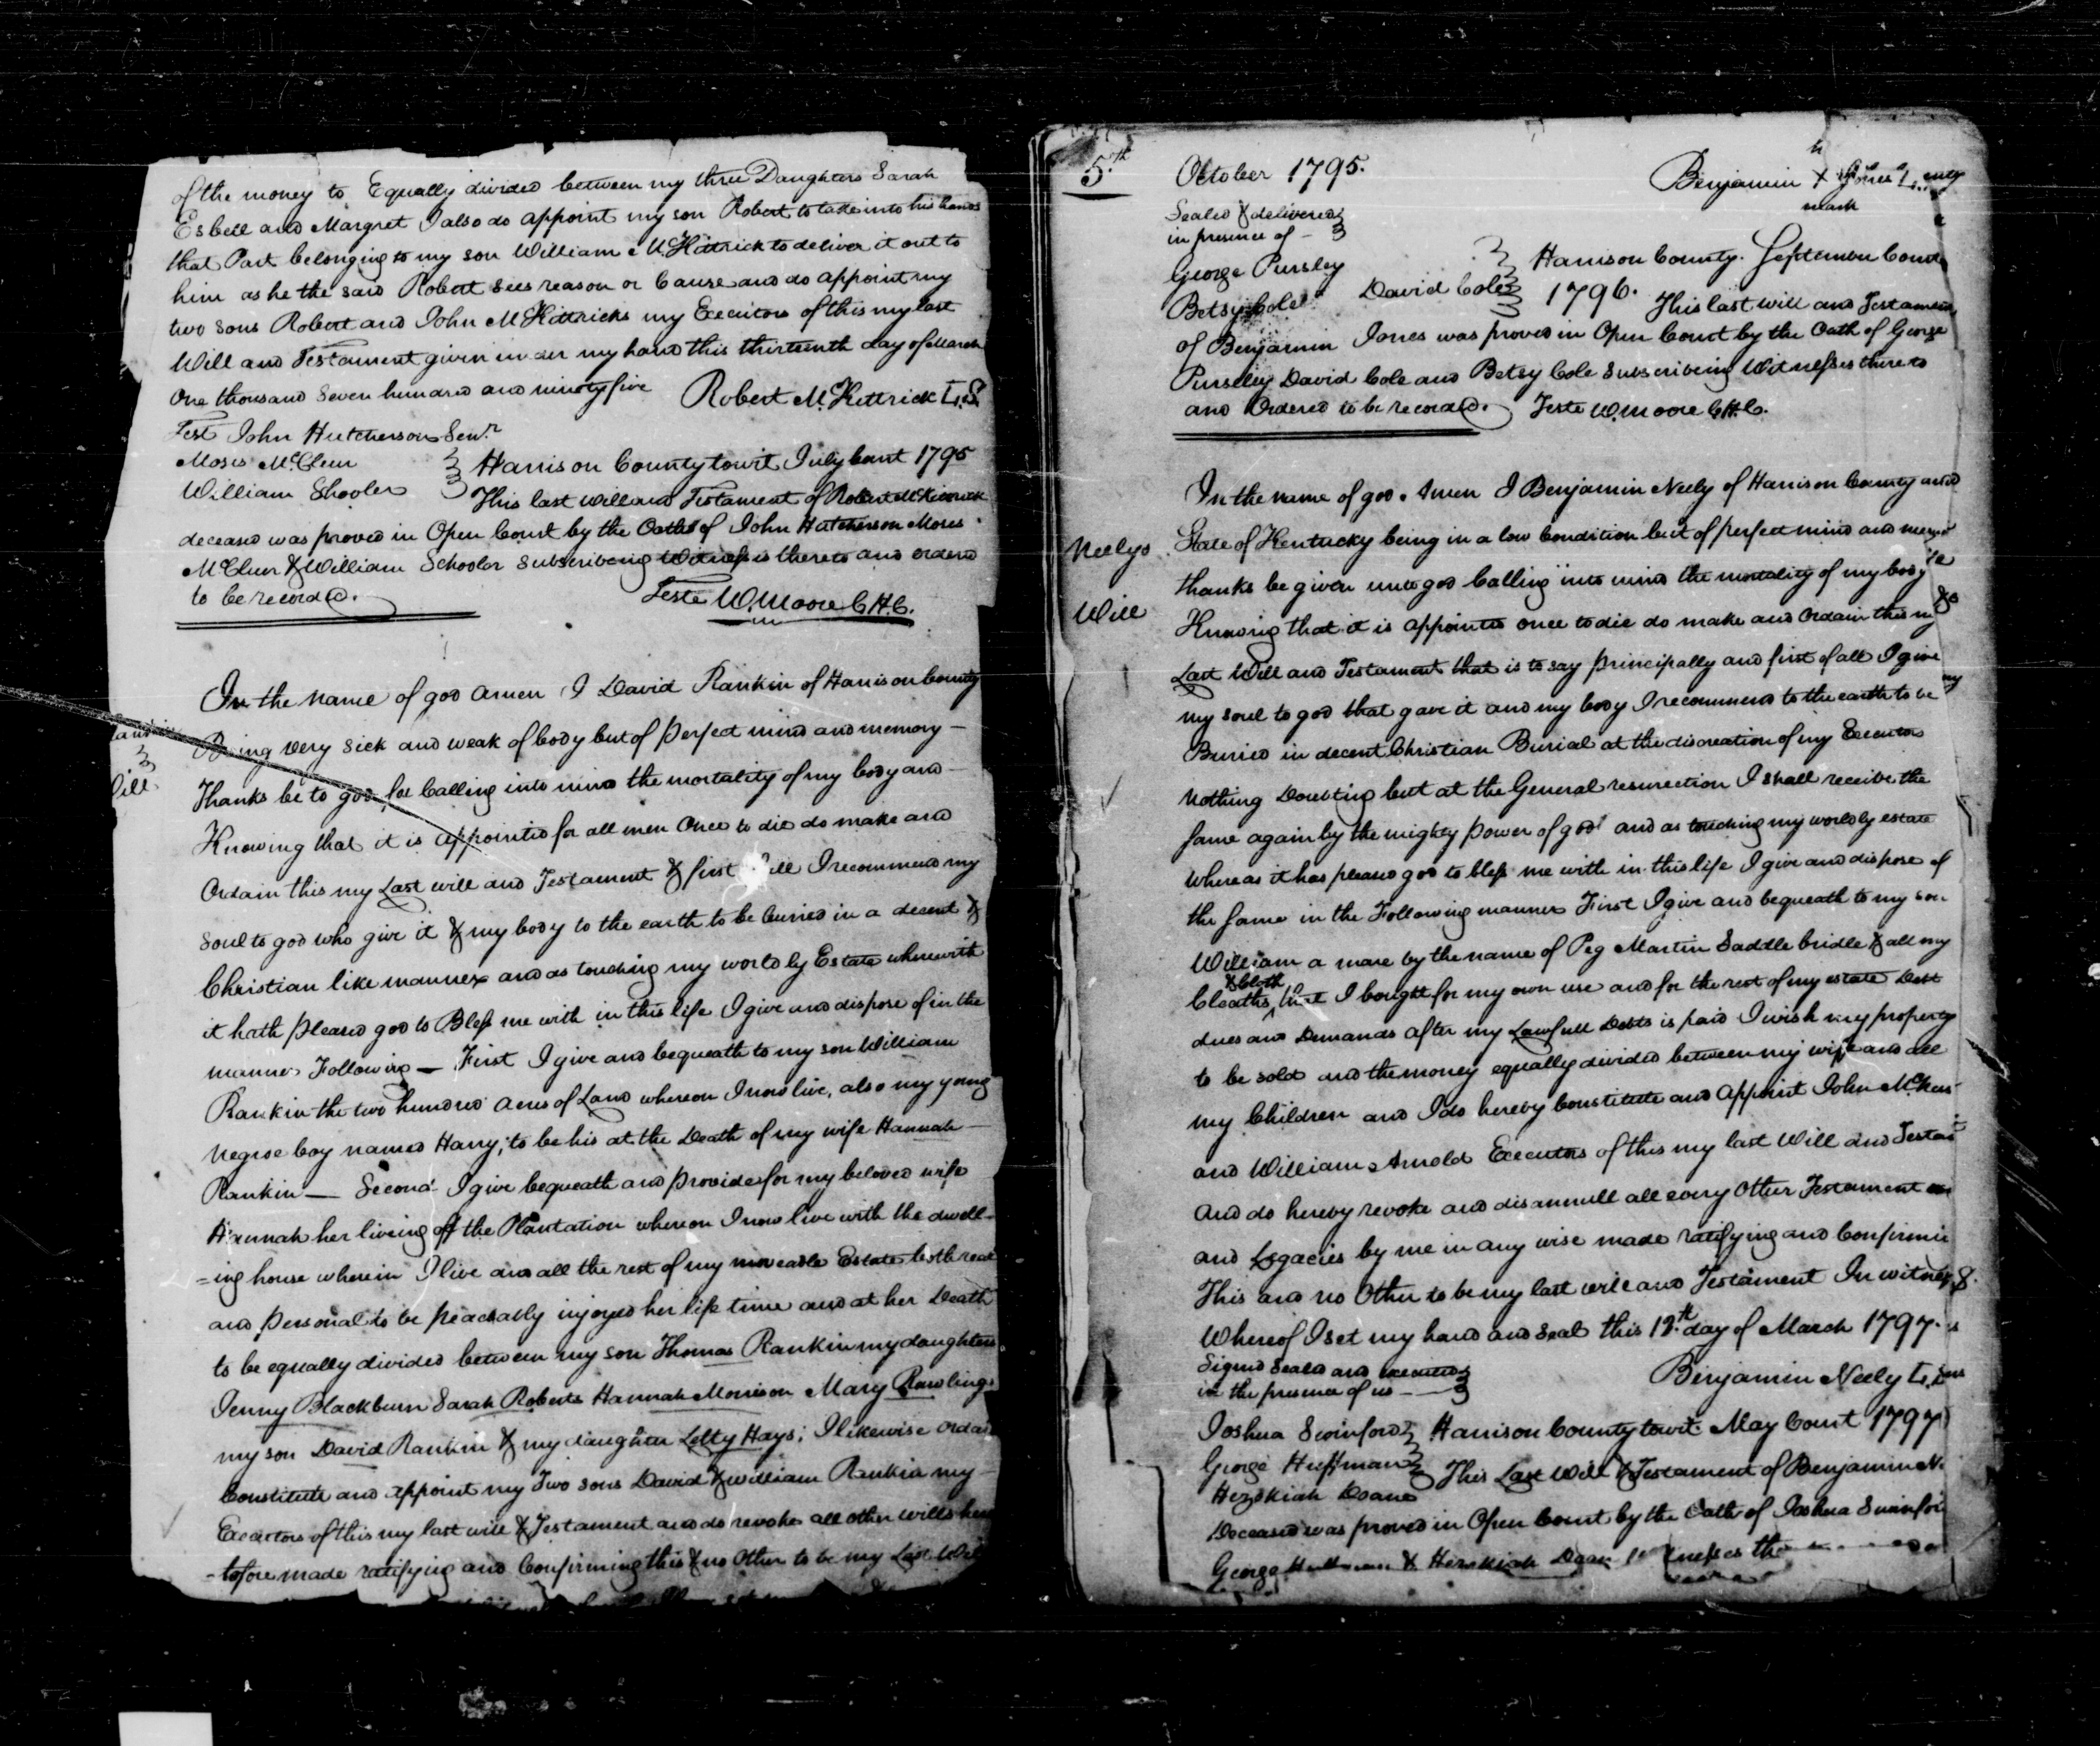 of the money to Equally divided between my three Daughters Sarah
Esbell and Margret I also do appoint my son Robert to take into his hands
that Part belonging to my son William McKittrick to deliver it out to
him as he the said Robert sees reason or Cause and do appoint my
two sons Robert and John McKittricks my Executors of this my last
Will and Testament given under my hand this thirteenth day of March
One thousand Seven hundred and ninety five Robert McKittrick L.S.
Test John Hutcherson Senr.
Moses McCleur
William Shooler
Harrison County towit July Court 1795
This last will and Testament of Robert McKittrick
deceased was proved in Open Court by the Oaths of John Hutcherson Moses
McCluer & William Schooler Subscribing Witnesses thereto and ordered
to be recorded.
Teste W. Moore C.H.C.
In the name of god amen I David Rankin of Harrison County
Being very sick and weak of body but of perfect mind and memory —
Thanks be to god for Calling into mind the mortality of my body and
Knowing that it is appointed for all men Once to die do make and
Ordain this my Last will and Testament & first all I recommend my
soul to god who give it & my body to the earth to be buried in a decent &
Christian like manner and as touching my worldly Estate wherewith
it hath pleased god to Bless me with in this life I give and dispose of in the
manner Following — First I give and bequeath to my son William
Rankin the two hundred acres of Land whereon I now live, also my young
Negroe boy named Harry, to be his at the Death of my wife Hannah
Rankin — Second I give bequeath and provide for my beloved wife
Hannah her living off the Plantation whereon I now live with the dwell-
=ing house wherein I live and all the rest of my moveable Estate both real
and personal to be peaceably injoyed her life time and at her Death
to be equally divided between my son Thomas Rankin my daughters
Jenny Blackburn Sarah Roberts Hannah Morrison Mary Rawlings
my son David Rankin & my daughter Letty Hays; I likewise Ordain
Constitute and appoint my Two sons David & William Rankin my
Executors of this my last will & Testament and do revoke all other wills here
-tofore made ratifying and Confirming this & no Other to be my Last Will
5th
October 1795.
Benjamin X Jones L.
mark
Sealed & delivered
in presence of —
George Pursley
Betsy Cole David Cole
Harrison County. September Court
1796. This last will and Testament
of Benjamin Jones was proved in Open Court by the Oath of George
Pursley David Cole and Betsy Cole Subscribing Witnesses thereto
and Ordered to be recorded. Teste W. Moore C.H.C.
Neelys
Will
In the name of god Amen I Benjamin Neely of Harrison County and
State of Kentucky being in a low Condition but of perfect mind and
thanks be given unto god Calling into mind the mortality of my body
Knowing that it is appointed once to die do make and Ordain this my
Last Will and Testament that is to say principally and first of all I give
my soul to god that gave it and my body I recommend to the earth to be
Buried in decent Christian Burial at the discreation of my Executors
nothing Doubting but at the General resurrection I shall receive the
same again by the mighty power of god and as touching my worldly estate
whereas it has pleased god to bless me with in this life I give and dispose of
the same in the Following manner First I give and bequeath to my son
William a mare by the name of Peg Martin Saddle bridle & all my
& Cloth
Cleaths that I bought for my own use and for the rest of my estate Debt
dues and Demands after my Lawfull Debts is paid I wish my property
to be sold and the money equally divided between my wife and all
my Children and I do hereby Constitute and appoint John
and William Arnold Executors of this my last Will and
and do hereby revoke and disannull all every Other Testament
and Legacies by me in any wise made ratifying and
This and no Other to be my last will and Testament In witness
Whereof I set my hand and Seal this 12th day of March 1797.
Signed Sealed and
in the presence of us —
Benjamin Neely L.
Joshua Swinford
George Huffman
Hezekiah Doane
Harrison County towit. May Court 1797
This Last Will & Testament of Benjamin N.
Deceased was proved in Open Court by the Oath of Joshua
George & Hezekiah